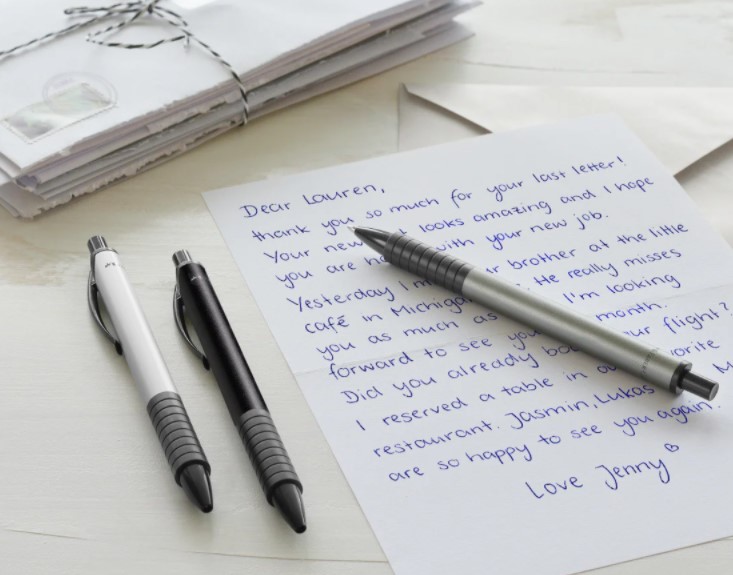 Dear Lauren,
thank you so much for your last letter!
Your new looks amazing and I hope
you are with your new job.
Yesterday I brother at the little
café in He really misses
you as much as I'm looking
forward to see month.
Did you already flight?
I reserved a table in
restaurant. Jasmin, Lukas
are so happy to see you again.
Love Jenny